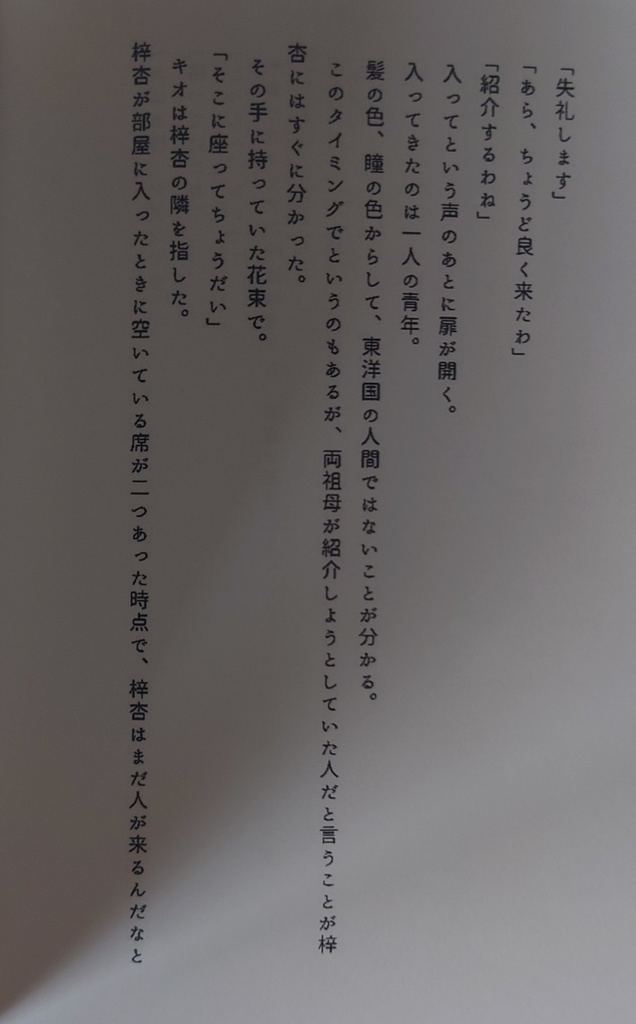 「失礼します」
「あら、ちょうど良く来たわ」
「紹介するわね」
入ってという声のあとに扉が開く。
入ってきたのは一人の青年。
髪の色、瞳の色からして、東洋国の人間ではないことが分かる。
このタイミングでというのもあるが、両祖母が紹介しようとしていた人だと言うことが梓
杏にはすぐに分かった。
その手に持っていた花束で。
「そこに座ってちょうだい」
キオは梓杏の隣を指した。
梓杏が部屋に入ったときに空いている席が二つあった時点で、梓杏はまだ人が来るんだなと